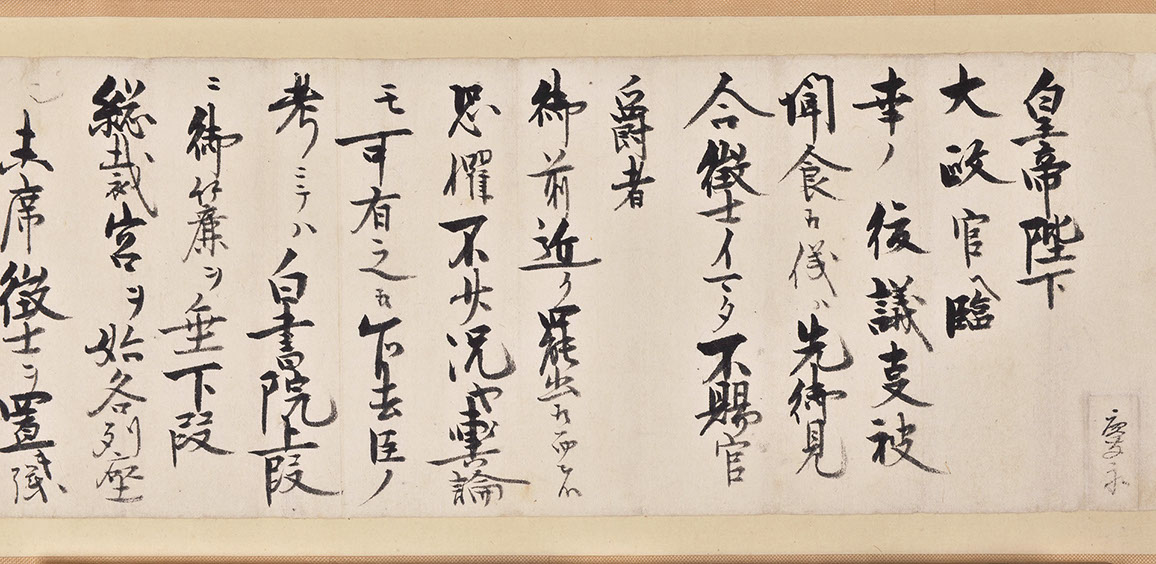 慶永
皇帝陛下
大政官ヘ臨
幸ノ後議叓被
聞食候儀ハ先御見
合徴士イマタ不賜官
爵者
御前近ク罷出候而者
恐懼不少況や輿論
モ可有之候乍去臣ノ
考ニテハ白書院上段
ニ御竹簾ヲ垂下段
総裁宮ヲ始各列座
シ末席徴士ヲ置